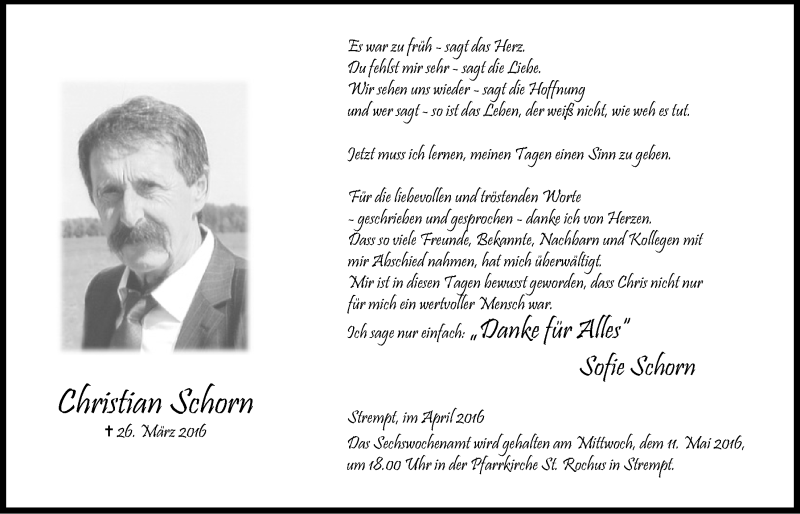 Es war zu früh - sagt das Herz.
Du fehlst mir sehr - sagt die Liebe.
Wir sehen uns wieder - sagt die Hoffnung
und wer sagt - so ist das Leben, der weiß nicht, wie weh es tut.
Jetzt muss ich lernen, meinen Tagen einen Sinn zu geben.
Für die liebevollen und tröstenden Worte
- geschrieben und gesprochen - danke ich von Herzen.
Dass so viele Freunde, Bekannte, Nachbarn und Kollegen mit
mir Abschied nahmen, hat mich überwältigt.
Mir ist in diesen Tagen bewusst geworden, dass Chris nicht nur
für mich ein wertvoller Mensch war.
Ich sage nur einfach: „Danke für Alles“
Sofie Schorn
Christian Schorn
† 26. März 2016
Strempt, im April 2016
Das Sechswochenamt wird gehalten am Mittwoch, dem 11. Mai 2016,
um 18.00 Uhr in der Pfarrkirche St. Rochus in Strempt.